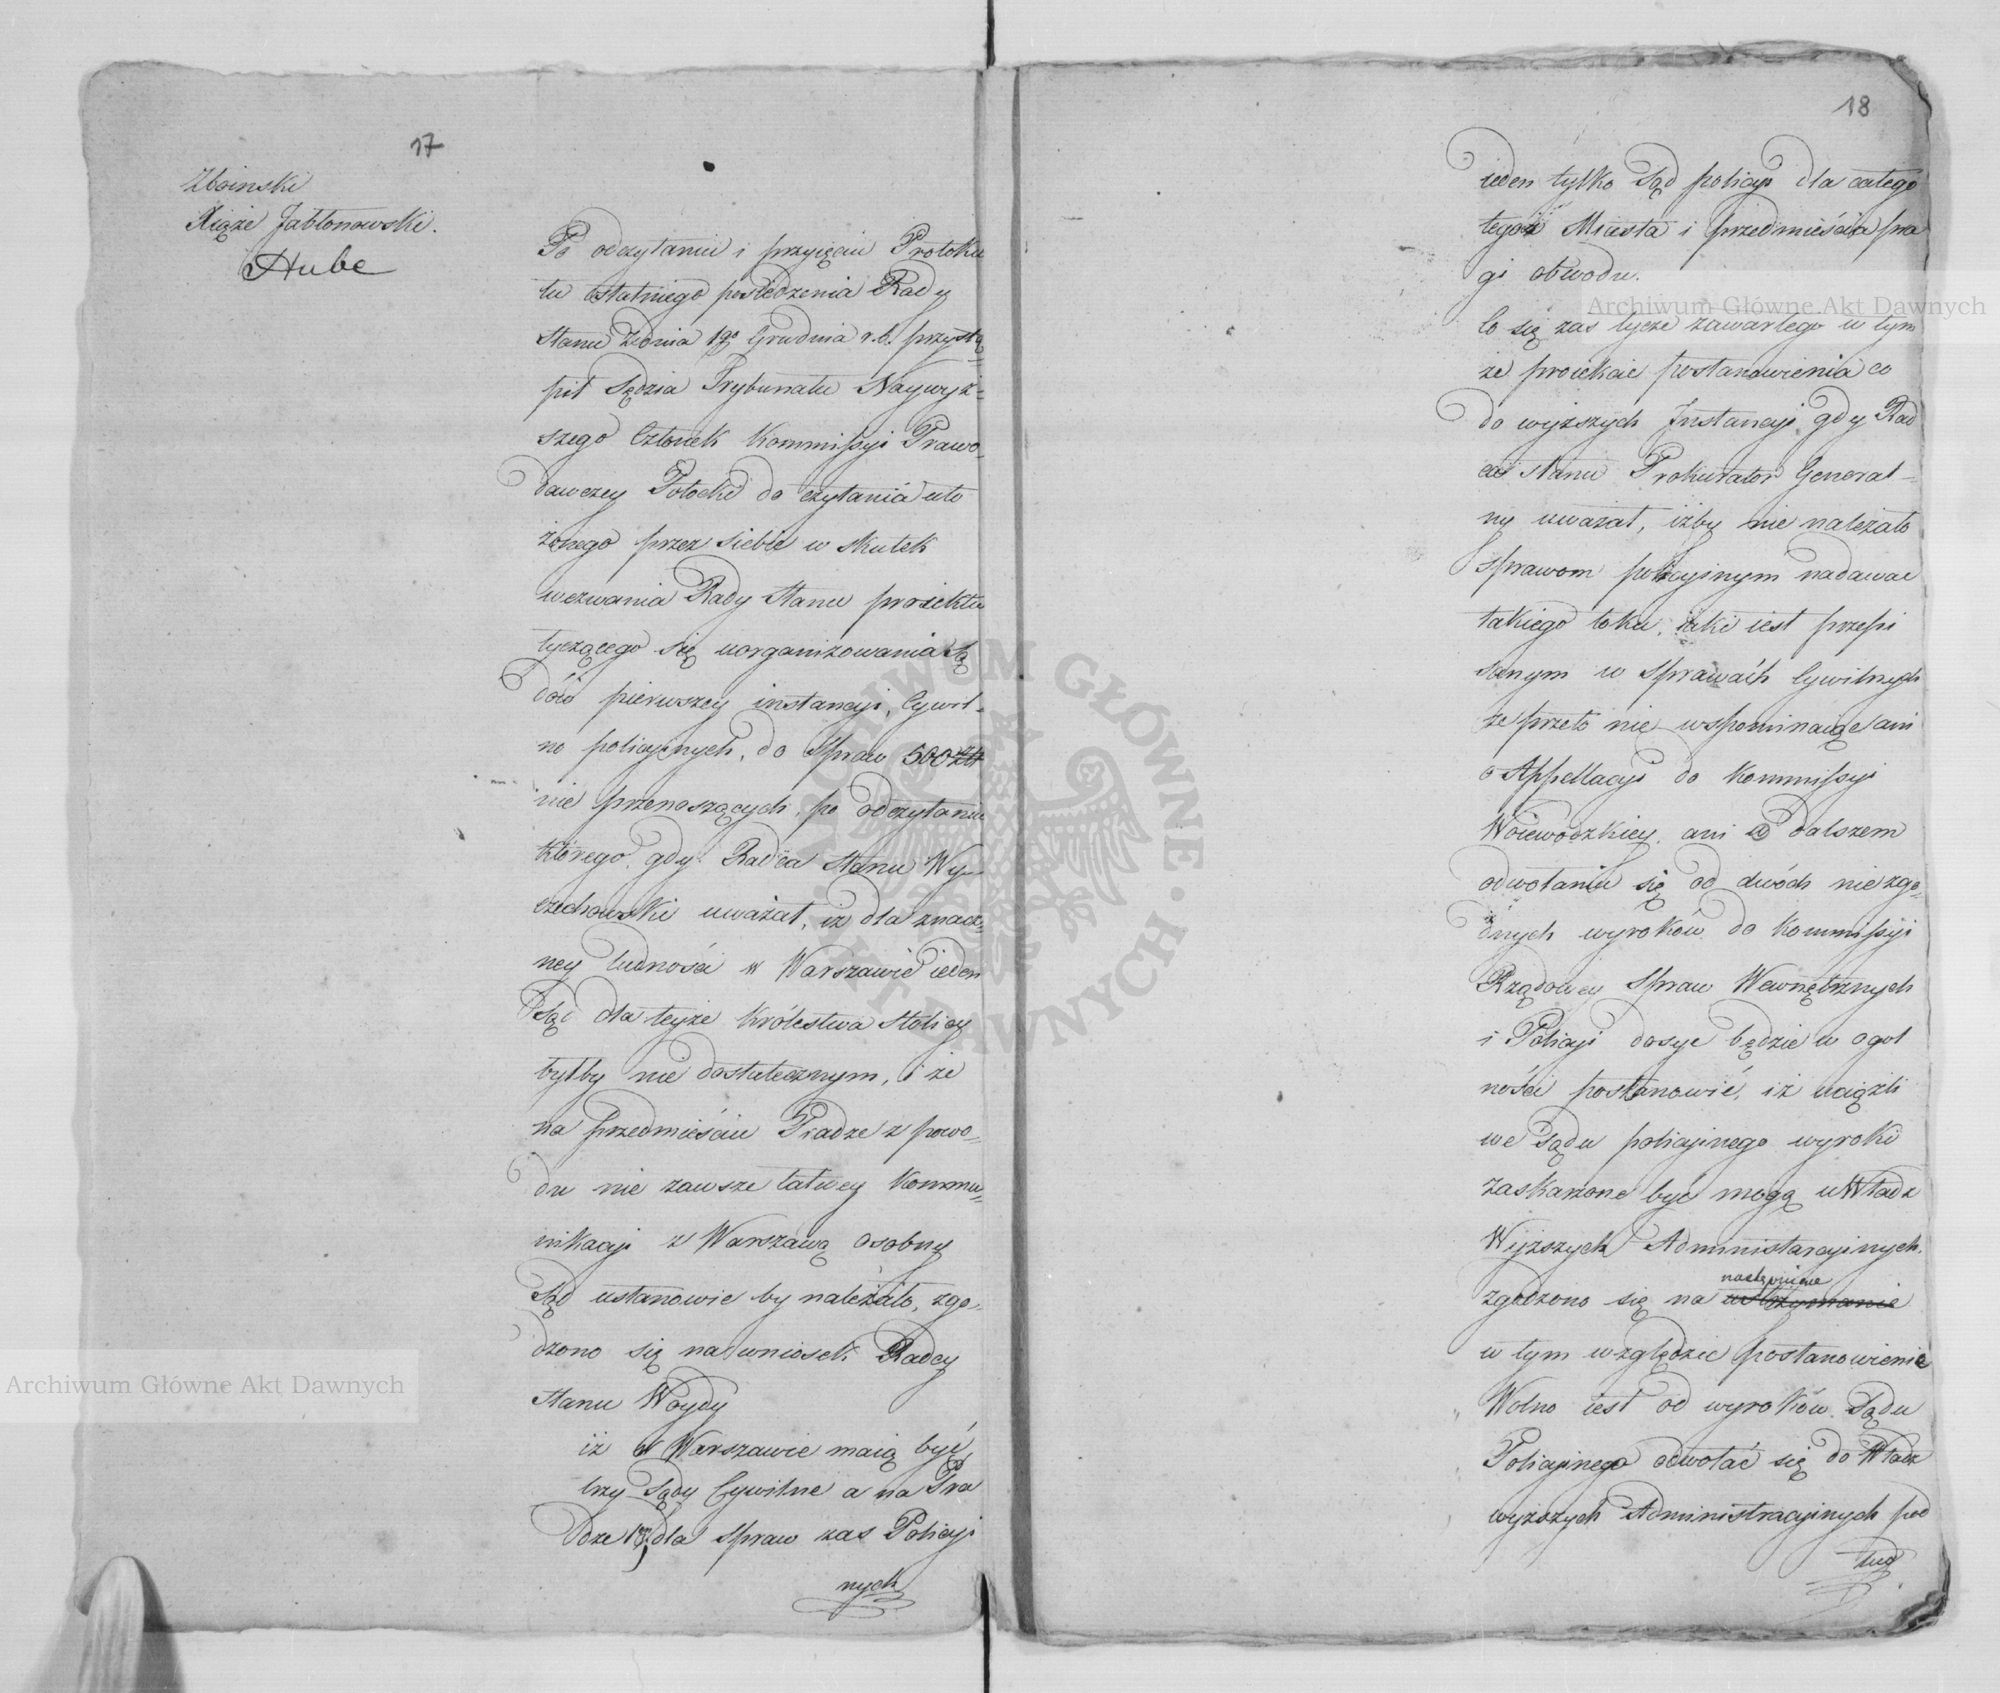 17
Zboinski
Xiąże Jabłonowski.
Hube
Po odczytaniu i przyięciu Protoku
łu ostatniego posiedzenia Rady
Stanu z dnia 19º Grudnia r.b. przystą
pił Sędzia Trybunału Naywyż-
szego Członek Kommissyi Prawo-
dawczey Potocki do czytania uło
żonego przez siebie w skutek
wezwania Rady Stanu proiektu
tyczącego się uorganizowania Są
dów pierwszey instancyi, Cywil-
no policyinych, do Spraw 500 Złt
nie przenoszących, po odczytaniu
którego, gdy Radca Stanu Wy-
czechowski uważał, iż dla znacz-
ney ludności w Warszawie ieden
Sąd dla teyże Królestwa Stolicy
byłby nie dostatecznym, i że
na przedmieściu Pradze z powo-
du nie zawsze łatwey Kommu-
nikacyi z Warszawą osobny
Sąd ustanowić by należało, zgo-
dzono się na wniosek Radcy
Stanu Woydy
iż w Warszawie maią być
trzy Sądy Cywilne a na Pra
dze 1en, dla Spraw zas Policyi
nych
18
ieden tylko Sąd policyi dla całego
tegoż Miasta i przedmieścia pra
gi obwodu.
Co się zas tycze zawartego w tym
że proiekcie postanowienia co
do wyższych Instancyi, gdy Rad
ca Stanu Prokurator General-
ny uważał, iżby nie należało
Sprawom policyinym nadawać
takiego toku, iaki iest przepi
sanym w Sprawach Cywilnych
że przeto nie wspominaiąc ani
o Appellacyi do Kommissyi
Woiewodzkiey, ani o dalszem
odwołaniu się od dwóch niezgo-
dnych wyroków do Kommissyi
Rządowey Spraw Wewnętrznych
i Policyi dosyć będzie w ogol
ności postanowić, iż uciążli
we Sądu policyinego wyroki
zaskarżone być mogą u Władz
Wyższych Administarcyinych.
następuiące
zgodzono się na utrzymanie
w tym względzie postanowienie
„ Wolno iest od wyroków Sądu
„ Policyinego odwołać się do Władz
„ wyższych Administracyinych pod
ług
Archiwum Główne Akt Dawnych
Archiwum Główne Akt Dawnych
ARCHIWUM GŁÓWNE · AKT DAWNYCH ·